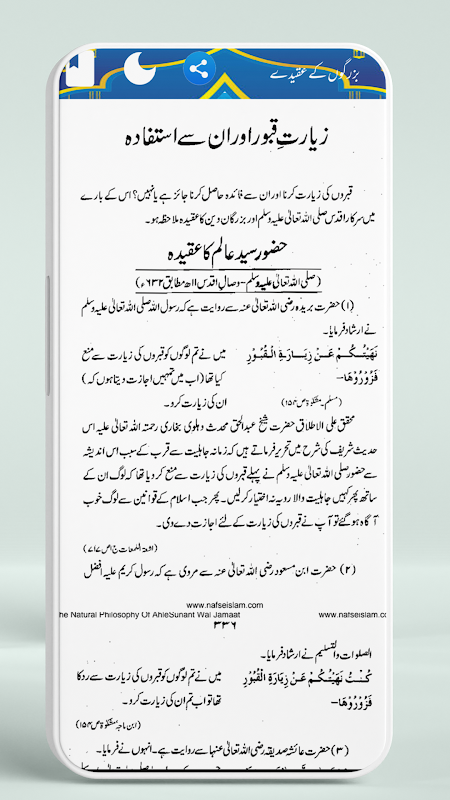 بزرگوں کے عقیدے
زیارتِ قبور اور ان سے استفادہ
قبروں کی زیارت کرنا اور ان سے فائدہ حاصل کرنا جائز ہے یا نہیں؟ اس کے بارے
میں سرکار اقدس صلی اللہ تعالیٰ علیہ وسلم اور بزرگان دین کا عقیدہ ملاحظہ ہو۔
حضور سید عالم کا عقیدہ
(صلی اللہ تعالیٰ علیہ وسلم - وصال اقدس ۱۱ھ مطابق ۶۳۲ء)
(۱) حضرت بریدہ رضی اللہ تعالیٰ عنہ سے روایت ہے کہ رسول اللہ صلی اللہ تعالیٰ علیہ وسلم
نے ارشاد فرمایا۔
نَهَيْتُكُمْ عَنْ زِيَارَةِ الْقُبُوْرِ میں نے تم لوگوں کو قبروں کی زیارت سے منع
فَزُوْرُوْهَا- کیا تھا (اب میں تمہیں اجازت دیتا ہوں کہ)
ان کی زیارت کرو۔
(مسلم۔ مشکوٰۃ ص ۱۵۴)
محقق علی الاطلاق حضرت شیخ عبدالحق محدث دہلوی بخاری رحمتہ اللہ تعالیٰ علیہ اس
حدیث شریف کی شرح میں تحریر فرماتے ہیں کہ زمانہ جاہلیت سے قرب کے سبب اس اندیشہ
سے حضور صلی اللہ تعالیٰ علیہ وسلم نے پہلے قبروں کی زیارت سے منع کر دیا تھا کہ لوگ ان کے
ساتھ پھر کہیں جاہلیت والا رویہ نہ اختیار کر لیں۔ پھر جب اسلام کے قوانین سے لوگ خوب
آگاہ ہو گئے تو آپ نے قبروں کی زیارت کے لئے اجازت دے دی۔
(اشعۃ اللمعات ج۱ ص ۷۱۷)
(۲) حضرت ابن مسعود رضی اللہ تعالیٰ عنہ سے مروی ہے کہ رسول کریم علیہ افضل
www.nafseislam.com
The Natural Philosophy Of AhleSunant Wal Jamaat www.nafseislam.com
۳۳۶
الصلوات والتسلیم نے ارشاد فرمایا۔
كُنْتُ نَهَيْتُكُمْ عَنْ زِيَارَةِ الْقُبُوْرِ میں نے تم لوگوں کو قبروں کی زیارت سے روکا
فَزُوْرُوْهَا- تھا تو اب تم ان کی زیارت کرو۔
(ابن ماجہ۔ مشکوٰۃ ص ۱۵۴)
(۳) حضرت عائشہ صدیقہ رضی اللہ تعالیٰ عنہا سے روایت ہے۔ انہوں نے فرمایا۔